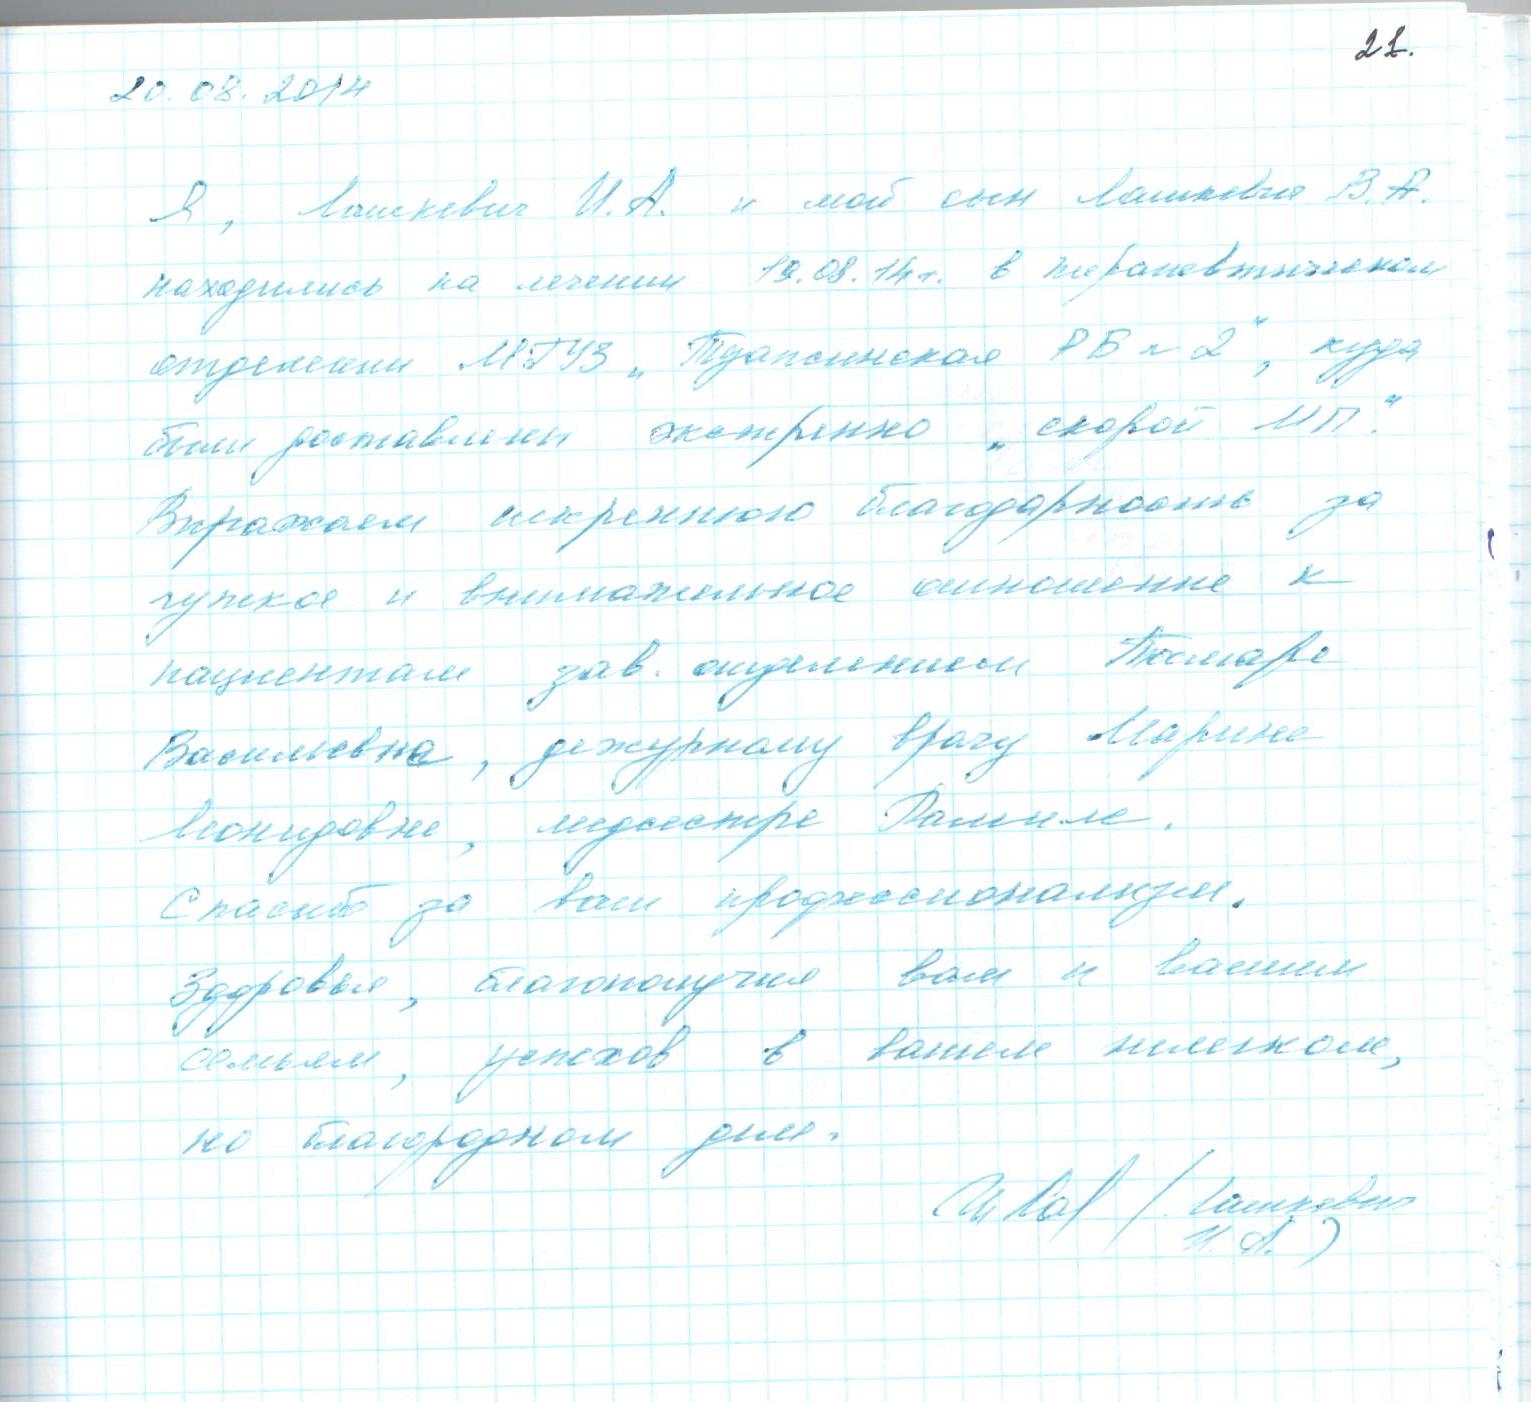 21.
20.08.2014
Я, Лашкевич И.А. и мой сын Лашкевич В.А.
находились на лечении 19.08.14г. в терапевтическом
отделении МБУЗ „Туапсинская РБ №2", куда
были доставлены экстренно „скорой МП".
Выражаем искреннюю благодарность за
чуткое и внимательное отношение к
пациентам зав. отделением Тамаре
Васильевна, дежурному врачу Марине
Леонидовне, медсестре Рамиле.
Спасибо за ваш профессионализм.
Здоровья, благополучия вам и вашим
семьям, успехов в вашем нелегком,
но благородном деле.
(Лашкевич
И.А.)